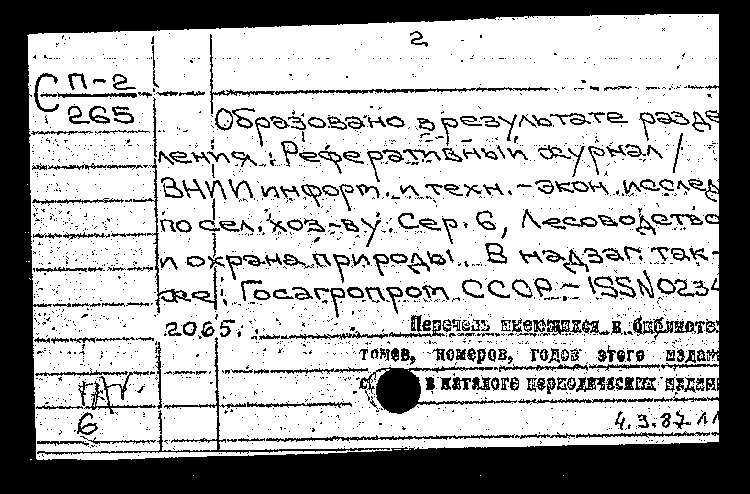 2
С П-2
265
Образовано в результате разде
ления: Реферативный журнал /
ВНИИ информ. и техн.-экон. исслед
по сел. хоз-ву. Сер. 6, Лесоводство
и охрана природы. В надзаг. так-
же: Госагропром СССР. – ISSN 0234
2065.
Перечень имеющихся в библиотек
томов, номеров, годов этого издан
в каталоге периодических издани
6
4.3.87